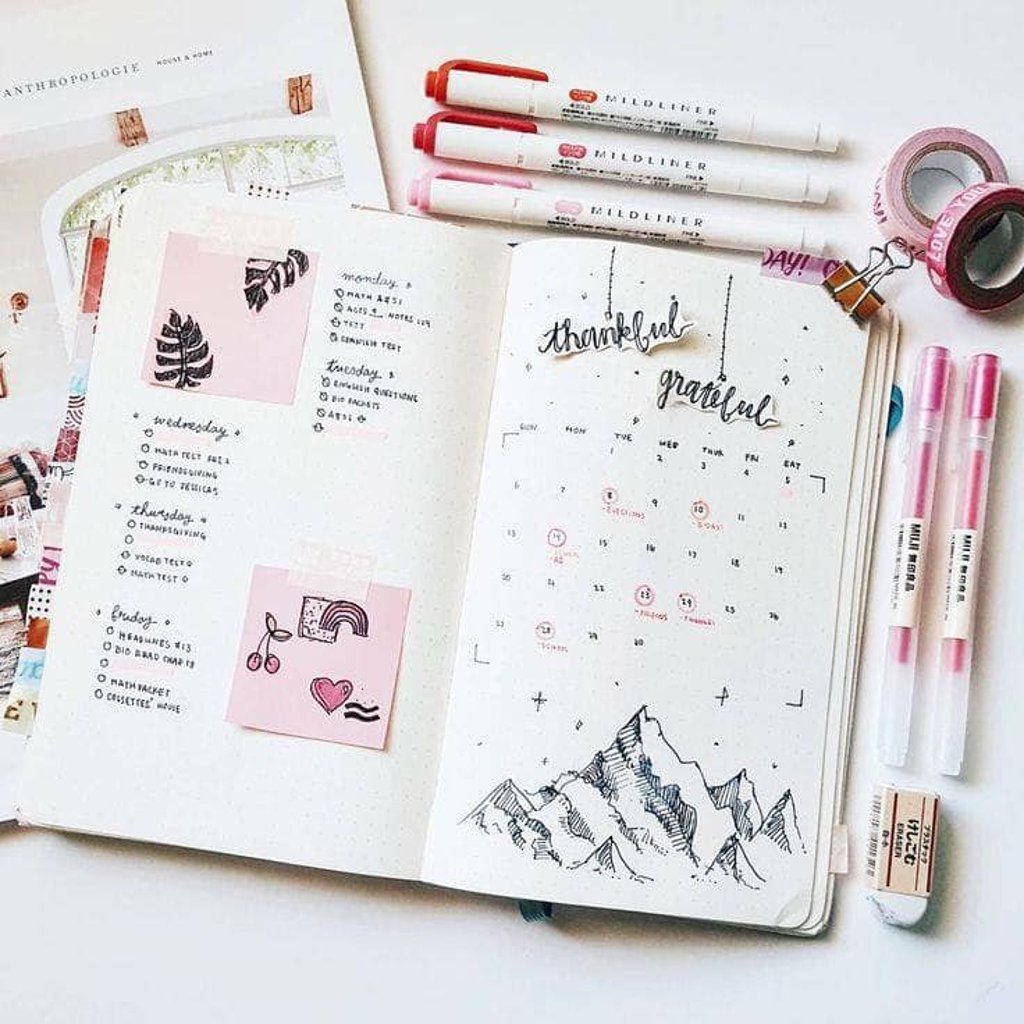 ANTHROPOLOGIE HOUSE & HOME
MILDLINER
MILDLINER
MILDLINER
LOVE YOU
DAY!
monday
MATH A#51
NOTES
TEST
SPANISH TEST
tuesday
ENGLISH QUESTIONS
BIO PACKETS
A#51
wednesday
MATH TEST
FRIENDSGIVING
GO TO JESSICAS
thursday
THANKSGIVING
VOCAB TEST
MATH TEST
friday
HEADLINES #13
BIO READ CHAP 13
MATH PACKET
COSSETTES' HOUSE
thankful
grateful
SUN MON TUE WED THUR FRI SAT
1 2 3 4 5
6 7 8 9 10 11 12
-ELECTIONS
13 14 15 16 17 18 19
20 21 22 23 24 25 26
-FRIENDS
27 28 29 30
-SCHOOL
MUJI 無印良品
MUJI 無印良品
プラスチック
けしごむ
ERASER